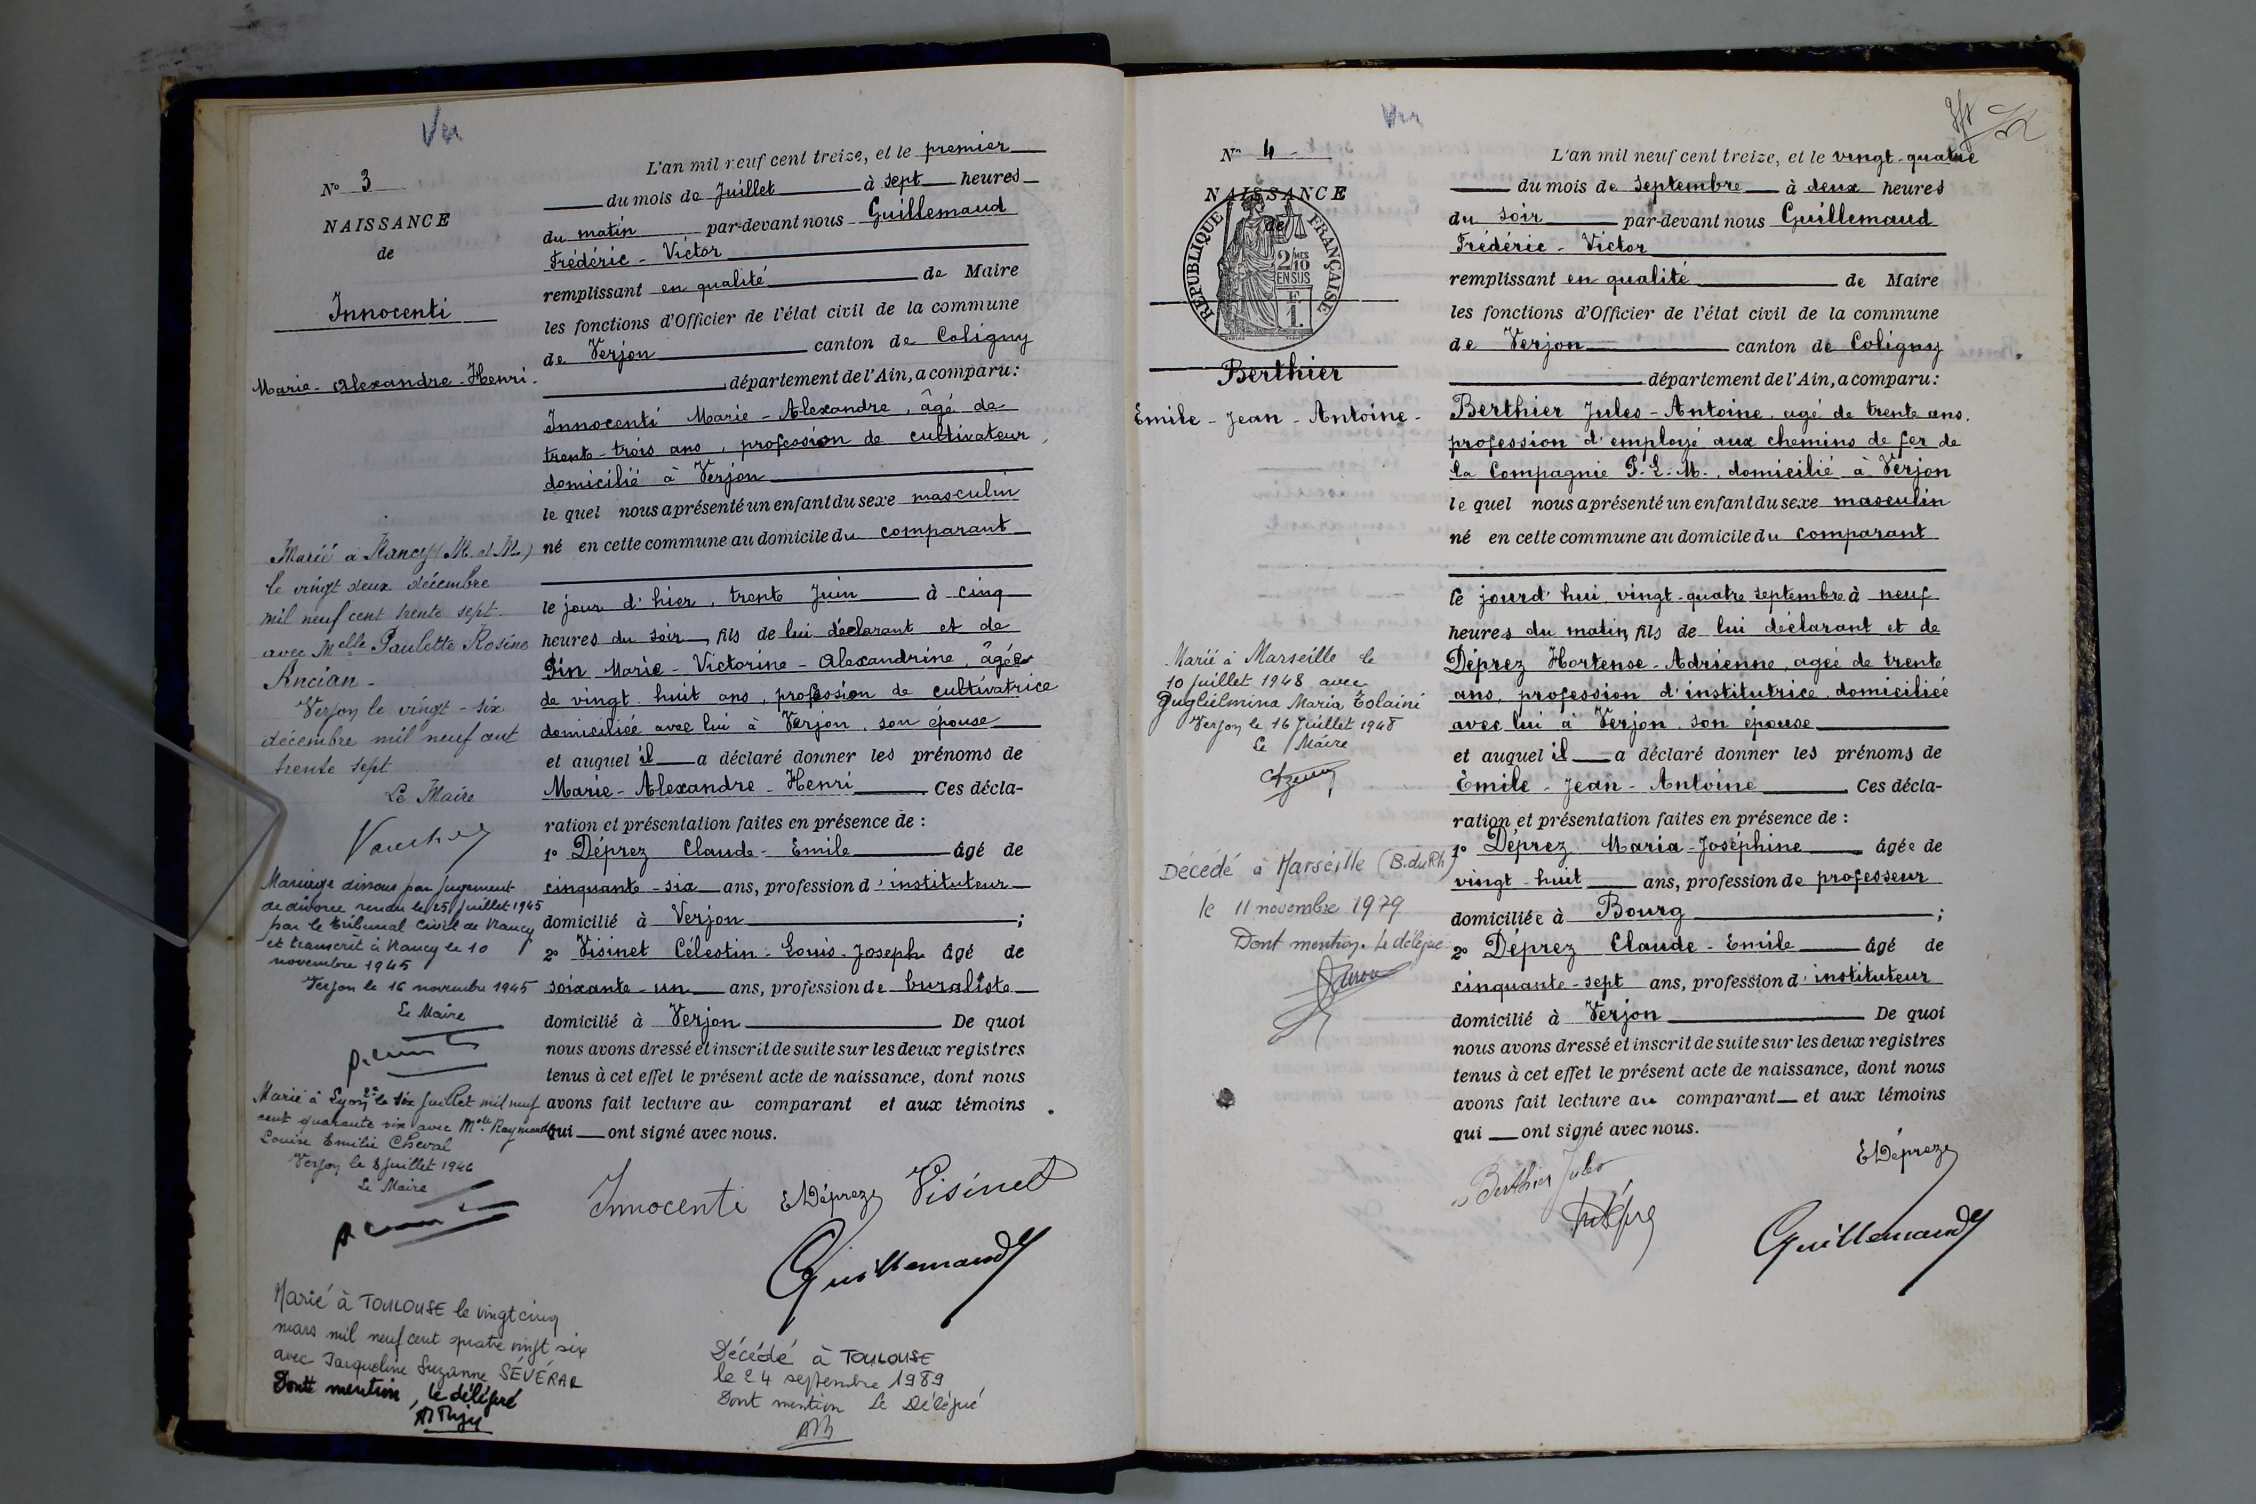 Vu
N° 3
NAISSANCE
de
Innocenti
Marie-Alexandre-Henri.
Marié à Nancy (M. et M.)
le vingt deux décembre
mil neuf cent trente sept
avec Melle Paulette Rosine
Ancian -
Verjon le vingt-six
décembre mil neuf cent
trente sept
Le Maire
Mariage dissous par jugement
de divorce rendu le 25 juillet 1945
par le tribunal civil de Nancy
et transcrit à Nancy le 10
novembre 1945
Verjon le 16 novembre 1945
Le Maire
Marié à Lyon 2e le six juillet mil neuf
cent quarante six avec Melle Raymonde
Louise Emilie Cheval
Verjon le 8 juillet 1946
Le Maire
Marié à TOULOUSE le vingt cinq
mars mil neuf cent quatre vingt six
avec Jacqueline Suzanne SÉVÉRAC
Dont mention, le délégué
L'an mil neuf cent treize, et le premier
du mois de Juillet à sept heures
du matin par-devant nous Guillemaud
Frédéric-Victor
remplissant en qualité de Maire
les fonctions d'Officier de l'état civil de la commune
de Verjon canton de Coligny
, département de l'Ain, a comparu :
Innocenti Marie-Alexandre, âgé de
trente-trois ans, profession de cultivateur,
domicilié à Verjon
le quel nous a présenté un enfant du sexe masculin
né en cette commune au domicile du comparant
le jour d'hier, trente Juin à cinq
heures du soir, fils de lui déclarant et de
Pin Marie-Victorine-Alexandrine, âgée
de vingt-huit ans, profession de cultivatrice
domiciliée avec lui à Verjon, son épouse
et auquel il a déclaré donner les prénoms de
Marie-Alexandre-Henri Ces décla-
ration et présentation faites en présence de :
1° Déprez Claude-Emile âgé de
cinquante-six ans, profession d'instituteur
domicilié à Verjon ;
2° Visinet Célestin-Louis-Joseph âgé de
soixante-un ans, profession de buraliste
domicilié à Verjon De quoi
nous avons dressé et inscrit de suite sur les deux registres
tenus à cet effet le présent acte de naissance, dont nous
avons fait lecture au comparant et aux témoins
qui ont signé avec nous.
Innocenti EDéprez Visinet
Guillemaud
Décédé à TOULOUSE
le 24 septembre 1989
Dont mention Le Délégué
Vu
N° 4
NAISSANCE
de
RÉPUBLIQUE FRANÇAISE
2/10MES
EN SUS
F.
1.
Berthier
Emile-Jean-Antoine-
Marié à Marseille le
10 juillet 1948 avec
Guglielmina Maria Tolaini
Verjon le 16 Juillet 1948
Le Maire
Décédé à Marseille (B.du Rh)
le 11 novembre 1979
Dont mention. Le délégué
L'an mil neuf cent treize, et le vingt-quatre
du mois de Septembre à deux heures
du soir par-devant nous Guillemaud
Frédéric-Victor
remplissant en qualité de Maire
les fonctions d'Officier de l'état civil de la commune
de Verjon canton de Coligny
département de l'Ain, a comparu :
Berthier Jules-Antoine, agé de trente ans.
profession d'employé aux chemins de fer de
la Compagnie P.L.M., domicilié à Verjon
le quel nous a présenté un enfant du sexe masculin
né en cette commune au domicile du comparant
le jourd'hui, vingt-quatre septembre à neuf
heures du matin, fils de lui déclarant et de
Déprez Hortense-Adrienne, agée de trente
ans, profession d'institutrice, domiciliée
avec lui à Verjon, son épouse
et auquel il a déclaré donner les prénoms de
Émile-Jean-Antoine Ces décla-
ration et présentation faites en présence de :
1° Déprez Maria-Joséphine âgée de
vingt-huit ans, profession de professeur
domiciliée à Bourg ;
2° Déprez Claude-Emile âgé de
cinquante-sept ans, profession d'instituteur
domicilié à Verjon De quoi
nous avons dressé et inscrit de suite sur les deux registres
tenus à cet effet le présent acte de naissance, dont nous
avons fait lecture au comparant et aux témoins
qui ont signé avec nous.
EDéprez
Berthier Jules
Guillemaud